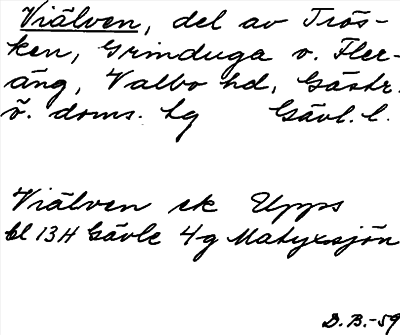 Viälven, del av Trös-
ken, Grinduga o. Fler-
äng, Valbo hd, Gästr.
ö. doms. tg Gävl. l.
Viälven ek Upps
bl 13H Gävle 4g Matyxsjön
D.B.-59